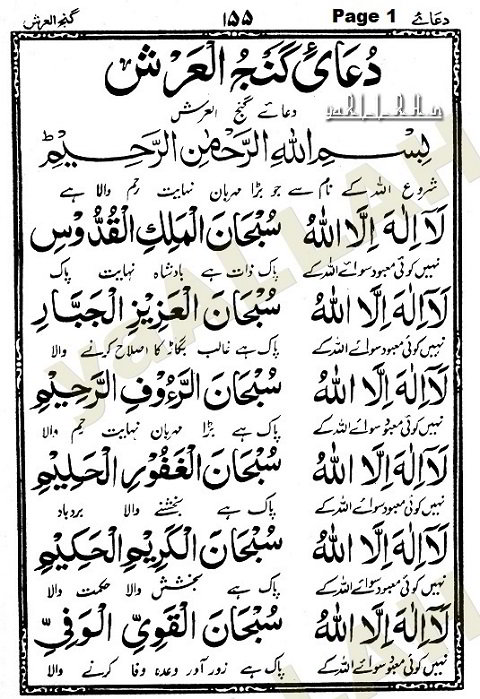 دعائے Page 1 ۱۵۵ گنج العرش
دُعَائ گَنجُ الْعَرْش
دعائے گنج العرش
yaALLAH.in
بِسْمِ اللهِ الرَّحْمٰنِ الرَّحِيْمِ ط
شروع اللہ کے نام سے جو بڑا مہربان نہایت رحم والا ہے
لَآ اِلٰهَ اِلَّا اللهُ سُبْحَانَ الْمَلِكِ الْقُدُّوْسِ
نہیں کوئی معبود سوائے اللہ کے پاک ذات ہے بادشاہ نہایت پاک
لَآ اِلٰهَ اِلَّا اللهُ سُبْحَانَ الْعَزِيْزِ الْجَبَّارِ
نہیں کوئی معبود سوائے اللہ کے پاک ہے غالب بگاڑ کا اصلاح کرنے والا
لَآ اِلٰهَ اِلَّا اللهُ سُبْحَانَ الرَّءُوْفِ الرَّحِيْمِ
نہیں کوئی معبود سوائے اللہ کے پاک ہے بڑا مہربان نہایت رحم والا
لَآ اِلٰهَ اِلَّا اللهُ سُبْحَانَ الْغَفُوْرِ الْحَلِيْمِ
نہیں کوئی معبود سوائے اللہ کے پاک ہے بخشنے والا بردباد
لَآ اِلٰهَ اِلَّا اللهُ سُبْحَانَ الْكَرِيْمِ الْحَكِيْمِ
نہیں کوئی معبود سوائے اللہ کے پاک ہے بخشش والا حکمت والا
لَآ اِلٰهَ اِلَّا اللهُ سُبْحَانَ الْقَوِيِّ الْوَفِيِّ
نہیں کوئی معبود سوائے اللہ کے پاک ہے زور آور وعدہ وفا کرنے والا
yaALLAH